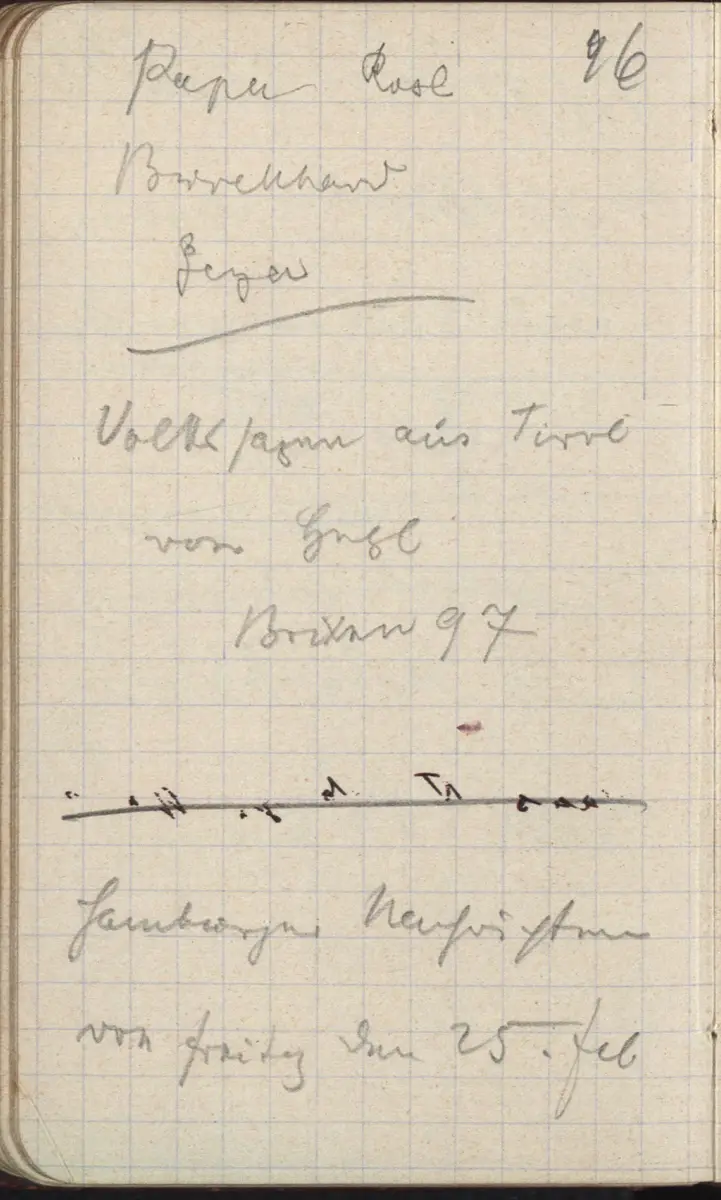 Papa Rosl 96
Burckhard
Volkssagen aus Tirol
von Heyl
Brixen 97
Hamburger Nachrichten
von freitag den 25. feb